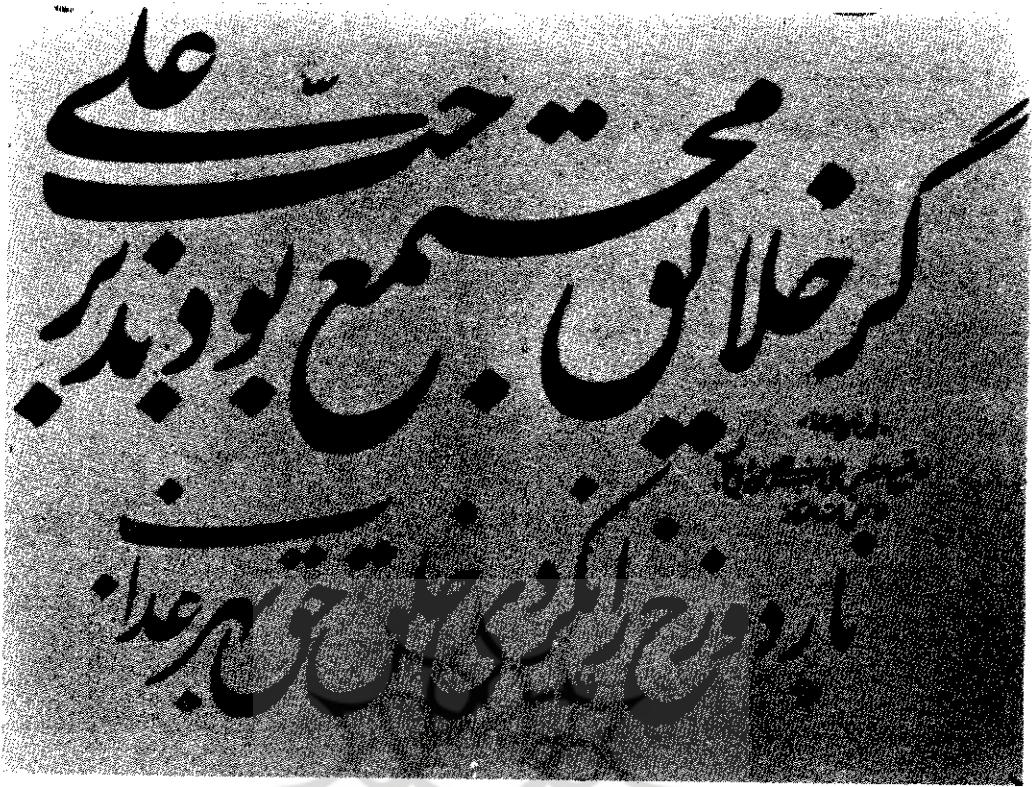 گر خلایق مجتمع بودند بر حبّ علی
نار دوزخ را نکردی خلق حق بهر عذاب